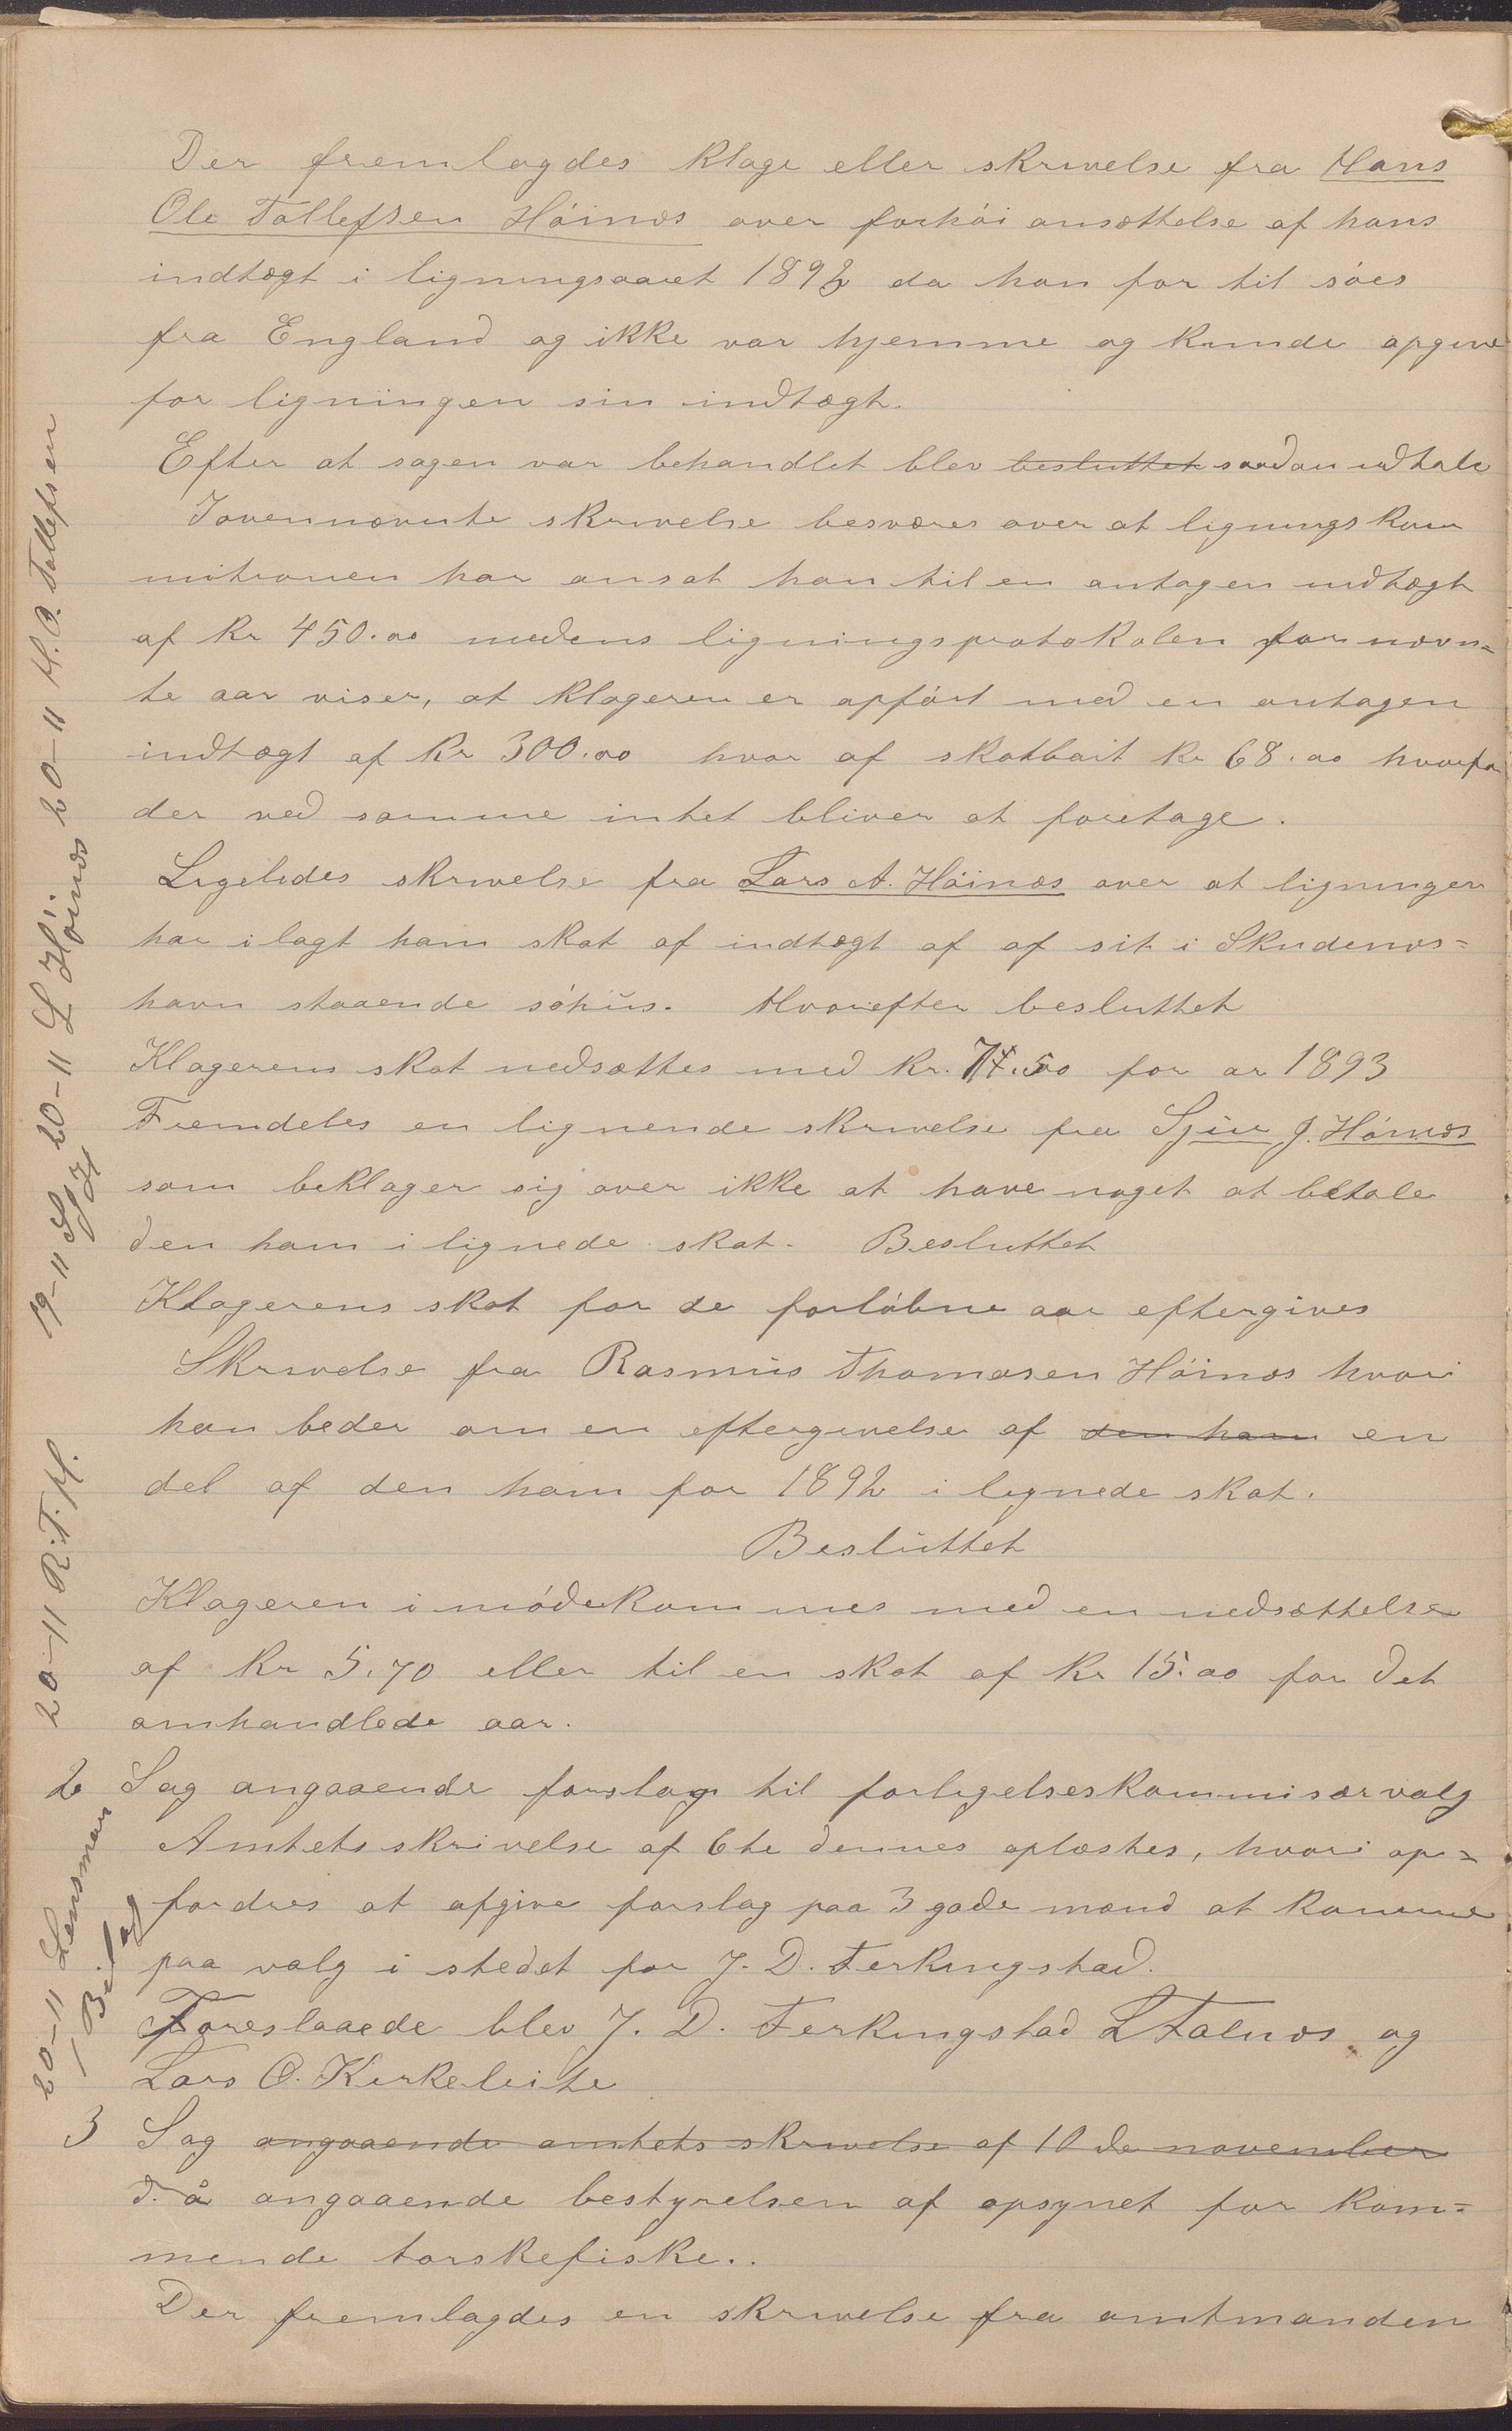 Der fremlagdes klage eller skrivelse fra Hans
Ole Tollefsen Höinæs over forhöi ansættelse af hans
indtægt i ligningsaaret 1892 da han for til söes
fra England og ikke var hjemme og kunde opgive
for ligningen sin indtægt.
Efter at sagen var behandlet blev besluttet saadan udtale
I ovennævnte skrivelse besværes over at lignings kom
mitionen har ansat han til en antagen indtægt
af Kr 450.00 medens ligningsprotokolen for nævn=
te aar viser, at klageren er opfört med en antagen
indtægt af Kr 300.00 hvor af skatbart Kr 68.00 hvorfor
der ved samme intet bliver at foretage.
Ligeledes skrivelse fra Lars A. Höinæs over at ligningen
har ilagt ham skat af indtægt af af sit i Skudenæs=
havn staaende söhus. Hvorefter besluttet
Klagerens skat nedsættes med Kr. 74.50 for ar 1893
Fremdeles en lignende skrivelse fra Sjur J. Höinæs
som beklager sig over ikke at have noget at betale
den ham i lignede skat. Besluttet
Klagerens skat for de forlöbne aar eftergives
Skrivelse fra Rasmus Thomasen Höinæs hvori
han beder om en eftergivelse af den ham en
del af den ham for 1892 i lignede skat.
Besluttet
Klageren imödekommes med en nedsættelse
af Kr 5.70 eller til en skat af Kr 15.00 for det
omhandlede aar.
2 Sag angaaende forslag til forligelseskommisærvalg
Amtets skrivelse af 6te dennes oplæstes, hvori op=
fordres at afgive forslag paa 3 gode mænd at komme
paa valg i stedet for J. D. Ferkingstad.
Foreslaaede blev J. D. Ferkingstad L Falnæs og
Lars O. Kirkeleite
3 Sag angaaende amtets skrivelse af 10de november
d. å angaaende bestyrelsen af opsynet for kom=
mende torskefiske..
Der fremlagdes en skrivelse fra amtmanden
20-11 H. O. Tollefsen
20-11 L Höinæs
19-11 S J H
20-11 R. T. H.
20-11 Lensman